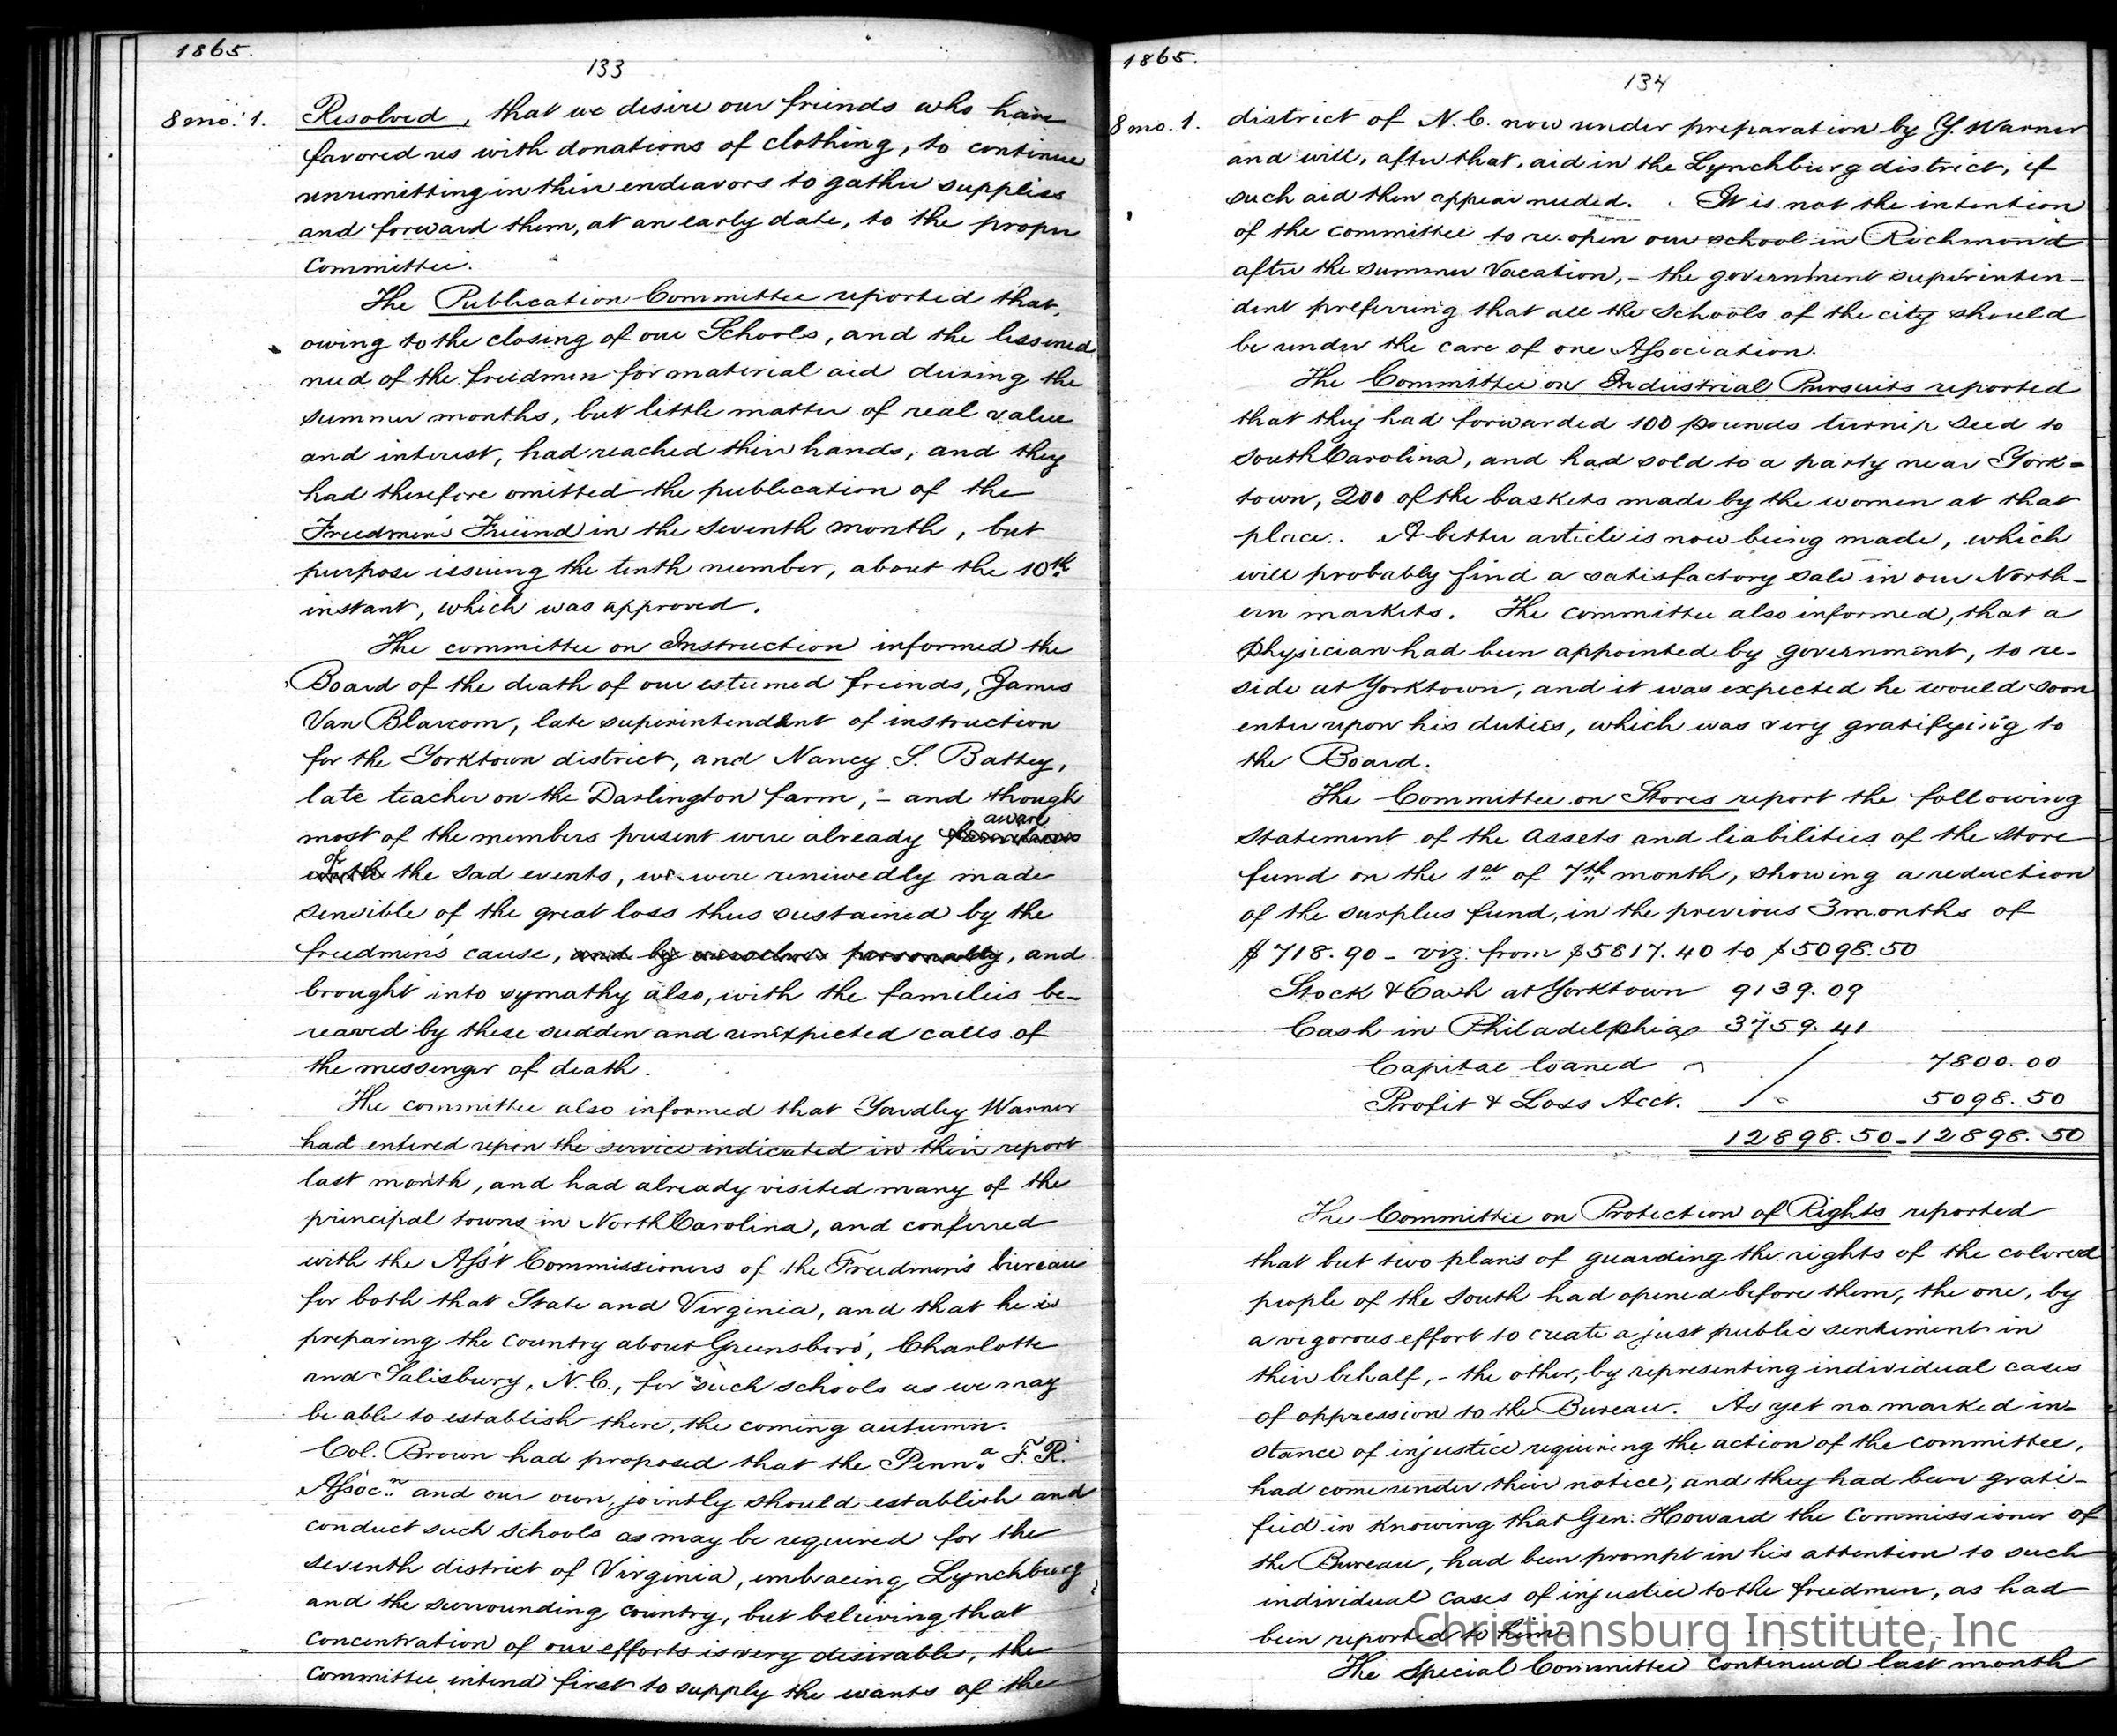 1865.
133
8 mo. 1. Resolved, that we desire our friends who have
favored us with donations of clothing, to continue
unremitting in their endeavors to gather supplies
and forward them, at an early date, to the proper
Committee.
The Publication Committee reported that,
owing to the closing of our Schools, and the lessened
need of the freedmen for material aid during the
summer months, but little matter of real value
and interest, had reached their hands, and they
had therefore omitted the publication of the
Freedmen's Friend in the Seventh month, but
purpose issuing the tenth number, about the 10th
instant, which was approved.
The committee on Instruction informed the
Board of the death of our esteemed friends, James
Van Blarcom, late superintendent of instruction
for the Yorktown district, and Nancy S. Battey,
late teacher on the Darlington farm, - and though
most of the members present were already familiar aware
with of the sad events, we were renewedly made
sensible of the great loss thus sustained by the
freedmen's cause, and by ourselves personally, and
brought into symathy also, with the families be-
reaved by these sudden and unexpected calls of
the messenger of death.
The committee also informed that Yardley Warner
had entered upon the service indicated in their report
last month, and had already visited many of the
principal towns in North Carolina, and conferred
with the Ass't Commissioners of the Freedmen's bureau
for both that State and Virginia, and that he is
preparing the country about Greensboro', Charlotte
and Salisbury, N.C., for such schools as we may
be able to establish there, the coming autumn.
Col. Brown had proposed that the Penn.a F. R.
Assoc.n and our own, jointly should establish and
conduct such schools as may be required for the
seventh district of Virginia, embracing Lynchburg
and the surrounding country, but believing that
concentration of our efforts is very desirable, the
committee intend first to supply the wants of the
1865.
134
8 mo. 1. district of N.C. now under preparation by Y. Warner
and will, after that, aid in the Lynchburg district, if
such aid then appear needed. It is not the intention
of the committee to re-open our school in Richmond
after the summer vacation, - the government superinten-
dent preferring that all the schools of the city should
be under the care of one Association.
The Committee on Industrial Pursuits reported
that they had forwarded 100 pounds turnip seed to
South Carolina, and had sold to a party near York-
town, 200 of the baskets made by the women at that
place. A better article is now being made, which
will probably find a satisfactory sale in our North-
ern markets. The committee also informed, that a
Physician had been appointed by government, to re-
side at Yorktown, and it was expected he would soon
enter upon his duties, which was very gratifying to
the Board.
The Committee on Stores report the following
statement of the assets and liabilities of the store
fund on the 1st of 7th month, showing a reduction
of the surplus fund, in the previous 3 months of
$718.90 - viz: from $5817.40 to $5098.50
Stock & Cash at Yorktown 9139.09
Cash in Philadelphia 3759.41
Capital loaned 7800.00
Profit & Loss Acct. 5098.50
12898.50 - 12898.50
The Committee on Protection of Rights reported
that but two plans of guarding the rights of the colored
people of the South had opened before them, the one, by
a vigorous effort to create a just public sentiment in
their behalf, - the other, by representing individual cases
of oppression to the Bureau. As yet no marked in-
stance of injustice requiring the action of the committee,
had come under their notice; and they had been grati-
fied in knowing that Gen: Howard the Commissioner of
the Bureau, had been prompt in his attention to such
individual cases of injustice to the freedmen, as had
been reported to him.
The Special Committee continued last month
Christiansburg Institute, Inc